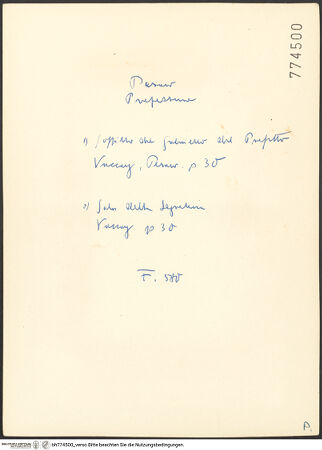 774500
Pesaro
Prefettura
1) Soffitto del gabinetto del Prefetto
Vaccaj, Pesaro. p 30
2) Sala della
Vaccaj p 30
F. 580
P.
bh774500_verso Bitte beachten Sie die Nutzungsbedingungen.